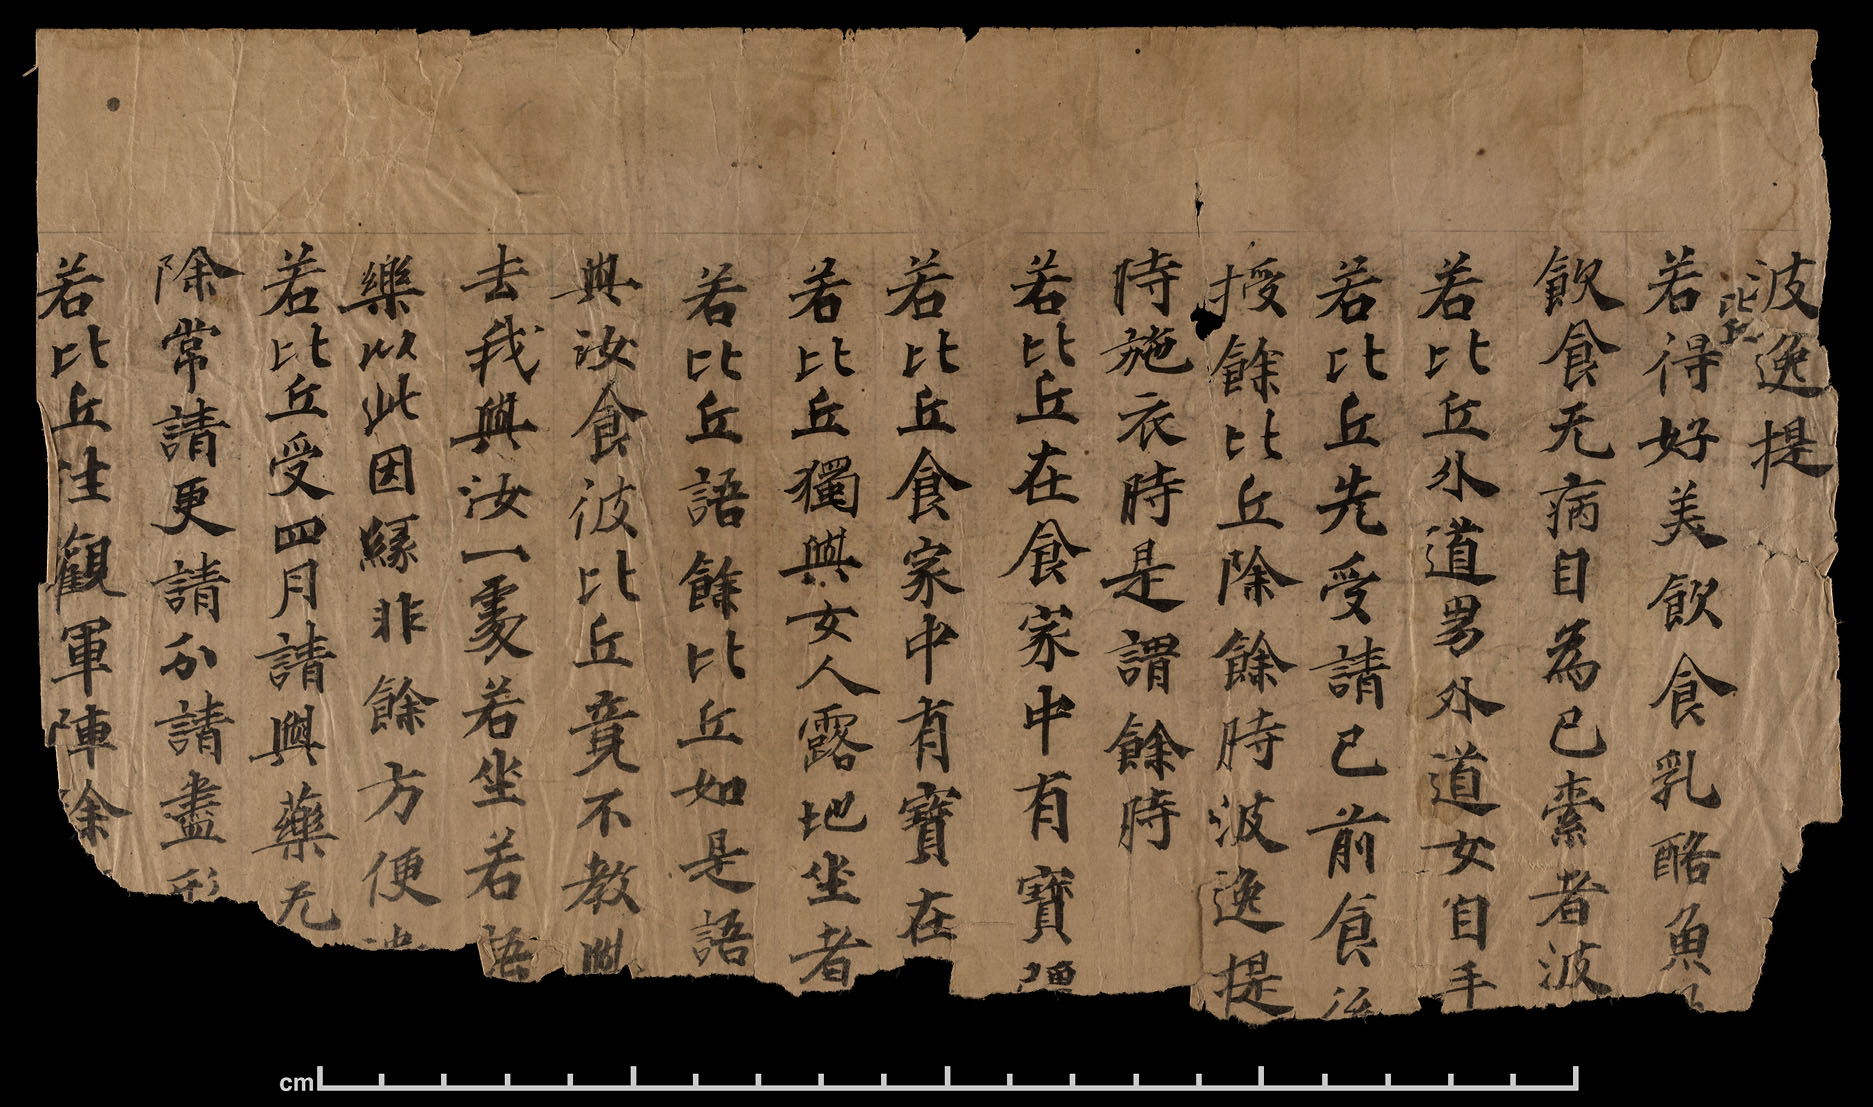 波逸提
若比丘得好美飲食乳酪魚
飲食无病自為己索者波
若比丘外道男外道女自手
若比丘先受請已前食後
授餘比丘除餘時波逸提
時施衣時是謂餘時
若比丘在食家中有寶
若比丘食家中有寶在
若比丘獨與女人露地坐者
若比丘語餘比丘如是語
與汝食彼比丘竟不教與
去我與汝一處若坐若語
樂以此因緣非餘方便
若比丘受四月請與藥无
除常請更請分請盡形
若比丘往觀軍陣除